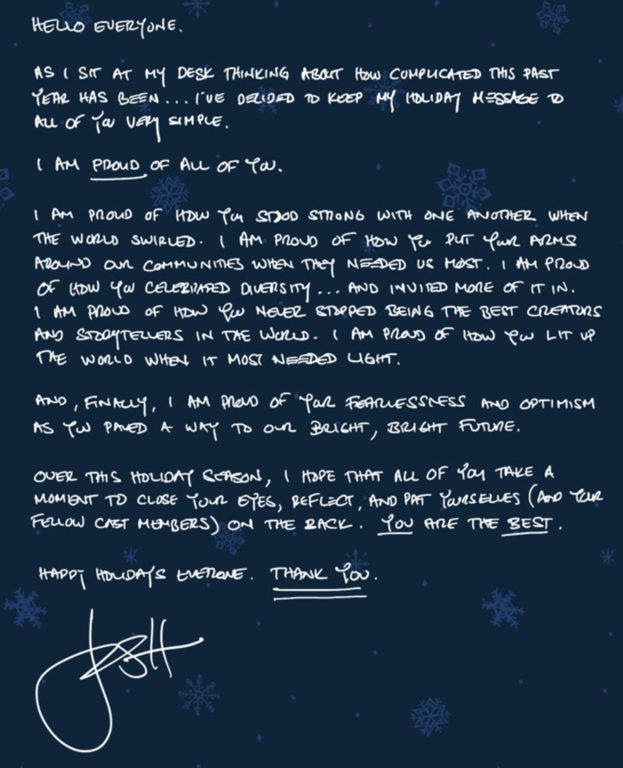 HELLO EVERYONE.
AS I SIT AT MY DESK THINKING ABOUT HOW COMPLICATED THIS PAST
YEAR HAS BEEN... I'VE DECIDED TO KEEP MY HOLIDAY MESSAGE TO
ALL OF YOU VERY SIMPLE.
I AM PROUD OF ALL OF YOU.
I AM PROUD OF HOW YOU STOOD STRONG WITH ONE ANOTHER WHEN
THE WORLD SWIRLED. I AM PROUD OF HOW YOU PUT YOUR ARMS
AROUND OUR COMMUNITIES WHEN THEY NEEDED US MOST. I AM PROUD
OF HOW YOU CELEBRATED DIVERSITY... AND INVITED MORE OF IT IN.
I AM PROUD OF HOW YOU NEVER STOPPED BEING THE BEST CREATORS
AND STORYTELLERS IN THE WORLD. I AM PROUD OF HOW YOU LIT UP
THE WORLD WHEN IT MOST NEEDED LIGHT.
AND, FINALLY, I AM PROUD OF YOUR FEARLESSNESS AND OPTIMISM
AS YOU PAVED A WAY TO OUR BRIGHT, BRIGHT FUTURE.
OVER THIS HOLIDAY SEASON, I HOPE THAT ALL OF YOU TAKE A
MOMENT TO CLOSE YOUR EYES, REFLECT, AND PAT YOURSELVES (AND YOUR
FELLOW CAST MEMBERS) ON THE BACK. YOU ARE THE BEST.
HAPPY HOLIDAYS EVERYONE. THANK YOU.
JOSH